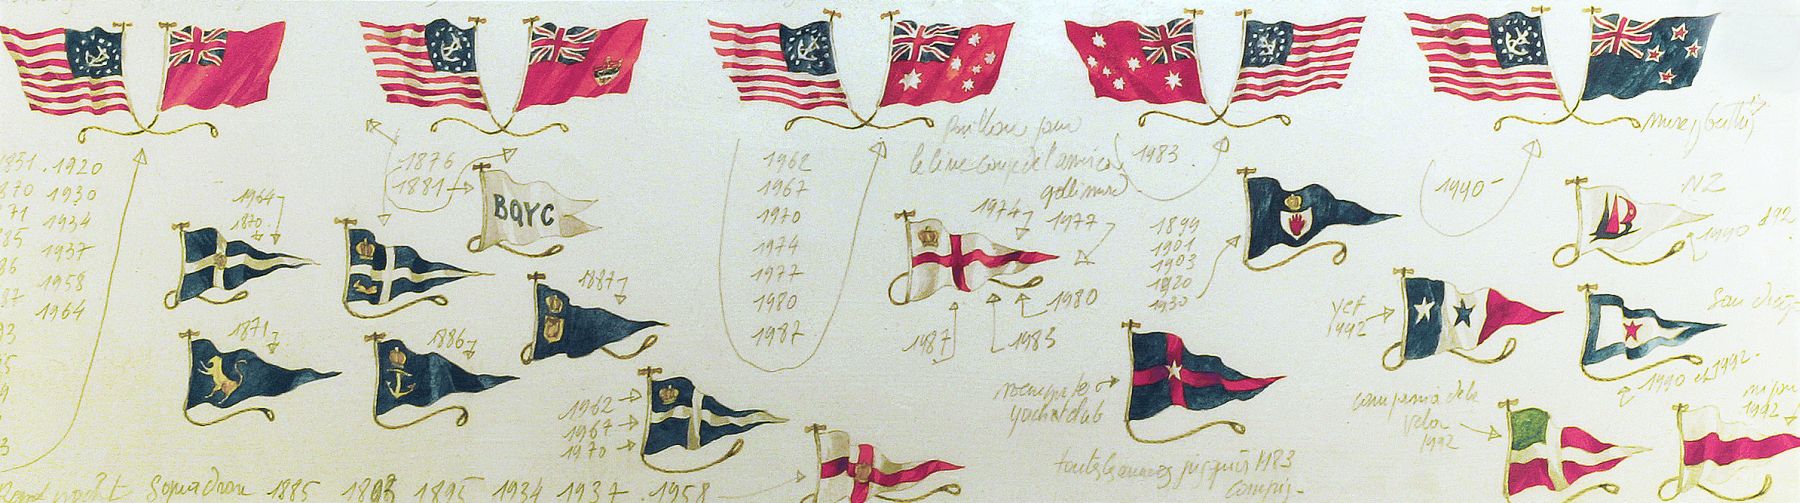 1851 . 1920
1870 1930
71 1934
85 1937
86 1958
87 1964
93
95
1964
1870
1871
1876
1881
BQYC
1886
1887
1962
1967
1970
1962
1967
1970
1974
1977
1980
1987
Pavillon pour
le livre coupe de l'america
gallimard
1974
1977
1980
1983
1987
1983
1899
1901
1903
1920
1930
new york
yacht club
toutes les années jusqu'à 1983
compris -
1990 -
NZ
1990 et 92
San diego
1990 et 1992 -
ycf
1992
compania della
vela
1992
nippon
1992
Royal yacht Squadron 1885 1893 1895 1934 1937 . 1958